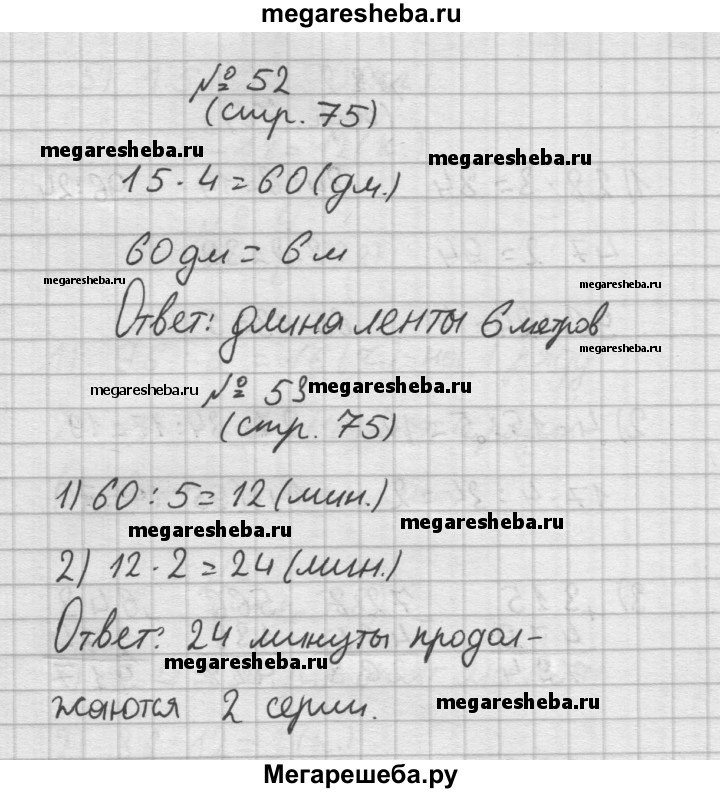 megaresheba.ru
№ 52
(стр. 75)
megaresheba.ru
megaresheba.ru
15 · 4 = 60 (дм.)
60 дм = 6 м
megaresheba.ru
megaresheba.ru
Ответ: длина ленты 6 метров
megaresheba.ru
megaresheba.ru
№ 53
megaresheba.ru
(стр. 75)
1) 60 : 5 = 12 (мин.)
megaresheba.ru
megaresheba.ru
2) 12 · 2 = 24 (мин.)
Ответ: 24 минуты продол-
megaresheba.ru
жаются 2 серии.
megaresheba.ru
Мегарешеба.ру